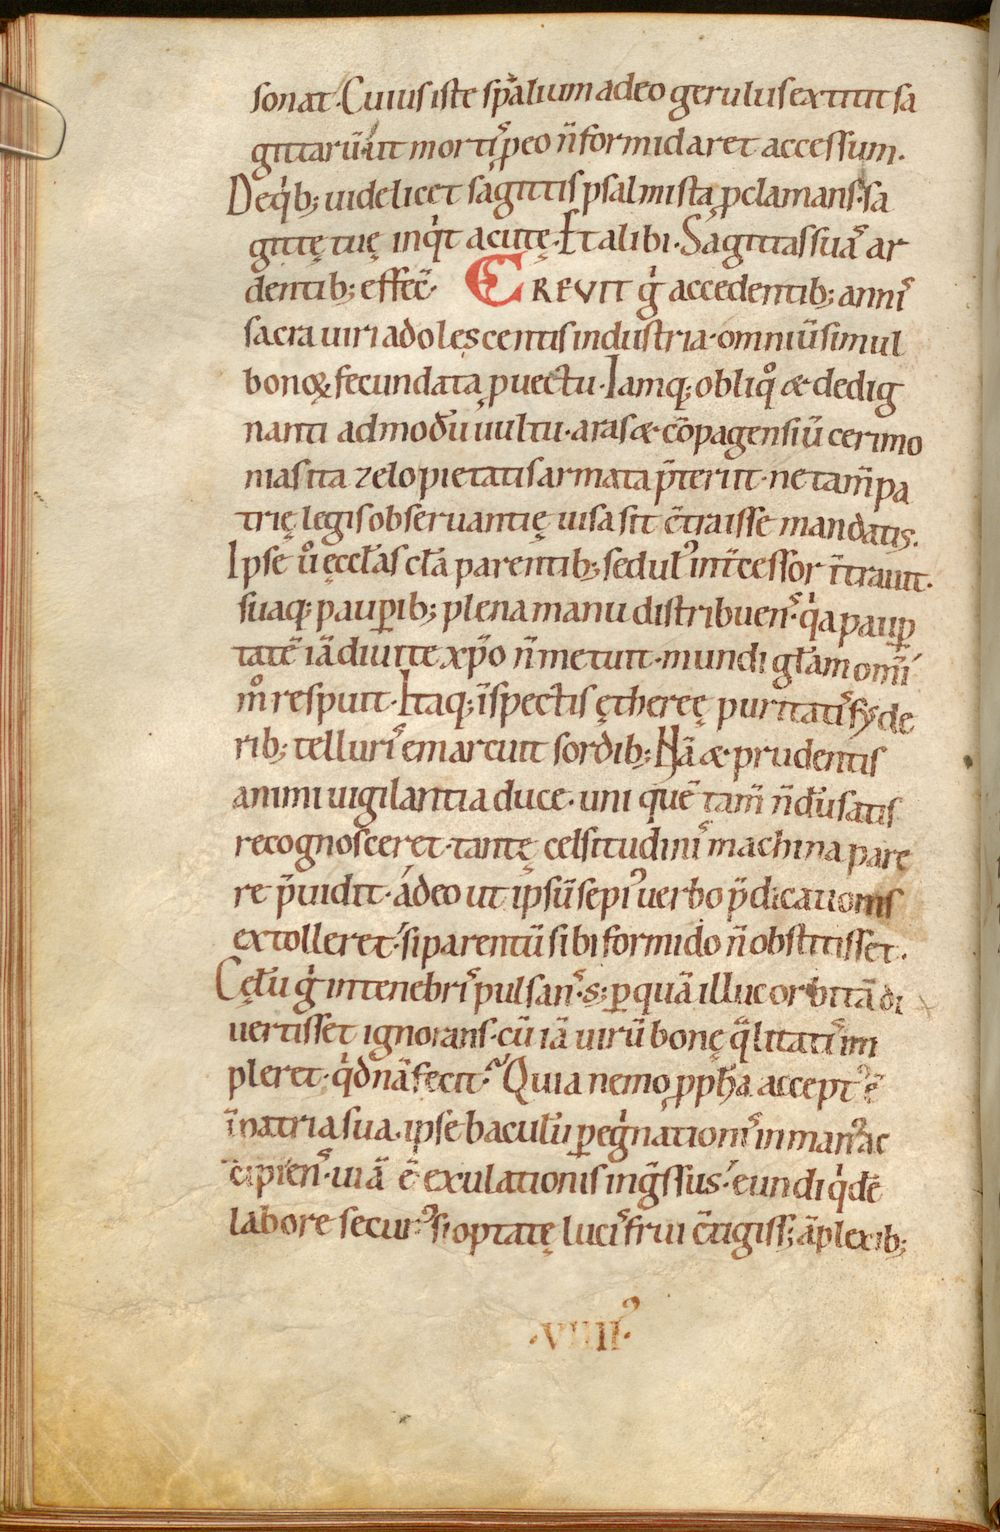 sonat. Cuius iste sp̃alium adeo gerulus extitit sa
gittarũ. ut mortiˢ p̱ eo ñ formidaret accessum.
De qͥb; uidelicet sagittis psalmista ꝓclamans. sa
gittę tuę inqͥt acutę. Et alibi. Sagittas suaˢ ar
dentib; effec̃. CREVIT gͥ accedentib; anniˢ
sacra uiri adolescentis industria. omniũ simul
bonoꝝ. fecundata ꝓuectu. Iamq; obliqͦ & dedig
nanti admodũ uultu. aras & cõpagensiũ cerimo
nias ita zelo pietatis armata p̃teriit. ne tam̃ pa
trię legis obseruantię uisa sit c̃traisse mandatis.
Ipse ůͦ ęccłas clã parentib; sedul᾿ int̃cessor ĩtrauit.
suaq; paup̱ib; plena manu distribuenˢ. qͥa paup̱
tatẽ iã diuite xp̃o ñ metuit. mundi gl̃am om̃i
mͦ respuit. Itaq; ĩspectis ęthereę puritatiˢ syde
rib; telluriˢ emarcuit sordib; Nã & prudentis
animi uigilantia duce. uni quẽ tam̃ ñdũ satis
recognosceret. tantę celsitudiniˢ machina pare
re p̃uidit. ádeo ut ipsũ sepi᾿ uerbo p̃dicationis
extolleret. si parentũ sibi formido ñ obstitisset.
Cęlũ gͥ in tenebriˢ pulsanˢ. s; p̱ quã illuc orbitã di
uertisset ignorans. cũ iã uirũ bonę q̃litatiˢ im
pleret. qͥdnã fecit? Quia nemo ꝓph̃a accept᾿ ẽ
ĩ patria sua. ipse bacul̃u p̱egͥnationiˢ in man᾿ ac
cipienˢ. uiã ẽ exulationis ing̃ssus. eundi qͥdẽ
labore secur᾿. si optatę luciˢ frui c̃tigiss; ãplexib;
.VIIII᾿.